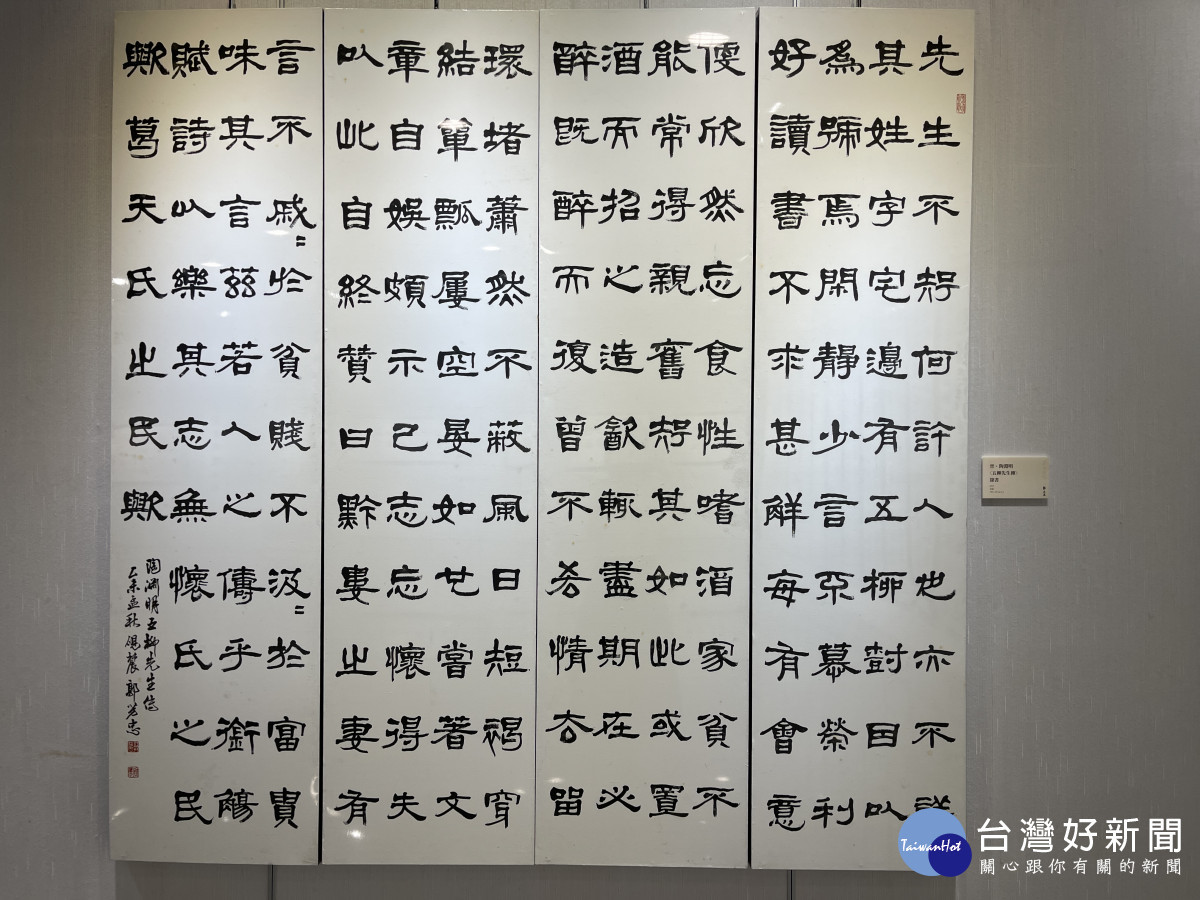 先生不知何許人也亦不詳
其姓字宅邊有五柳樹因以
為號焉閑靜少言不慕榮利
好讀書不求甚解每有會意
便欣然忘食性嗜酒家貧不
能常得親舊知其如此或置
酒而招之造飲輒盡期在必
醉既醉而退曾不吝情去留
環堵蕭然不蔽風日短褐穿
結單瓢屢空晏如也嘗著文
章自娛頗示己志忘懷得失
以此自終贊曰黔婁之妻有
言不戚=於貧賤不汲=於富貴
味其言茲若人之儔乎銜觴
賦詩以樂其志無懷氏之民
歟葛天氏之民歟
陶淵明五柳先生傳
乙未孟秋 郭芳忠
晉・陶淵明
〈五柳先生傳〉
隸書
TaiwanHot
台灣好新聞
關心跟你有關的新聞